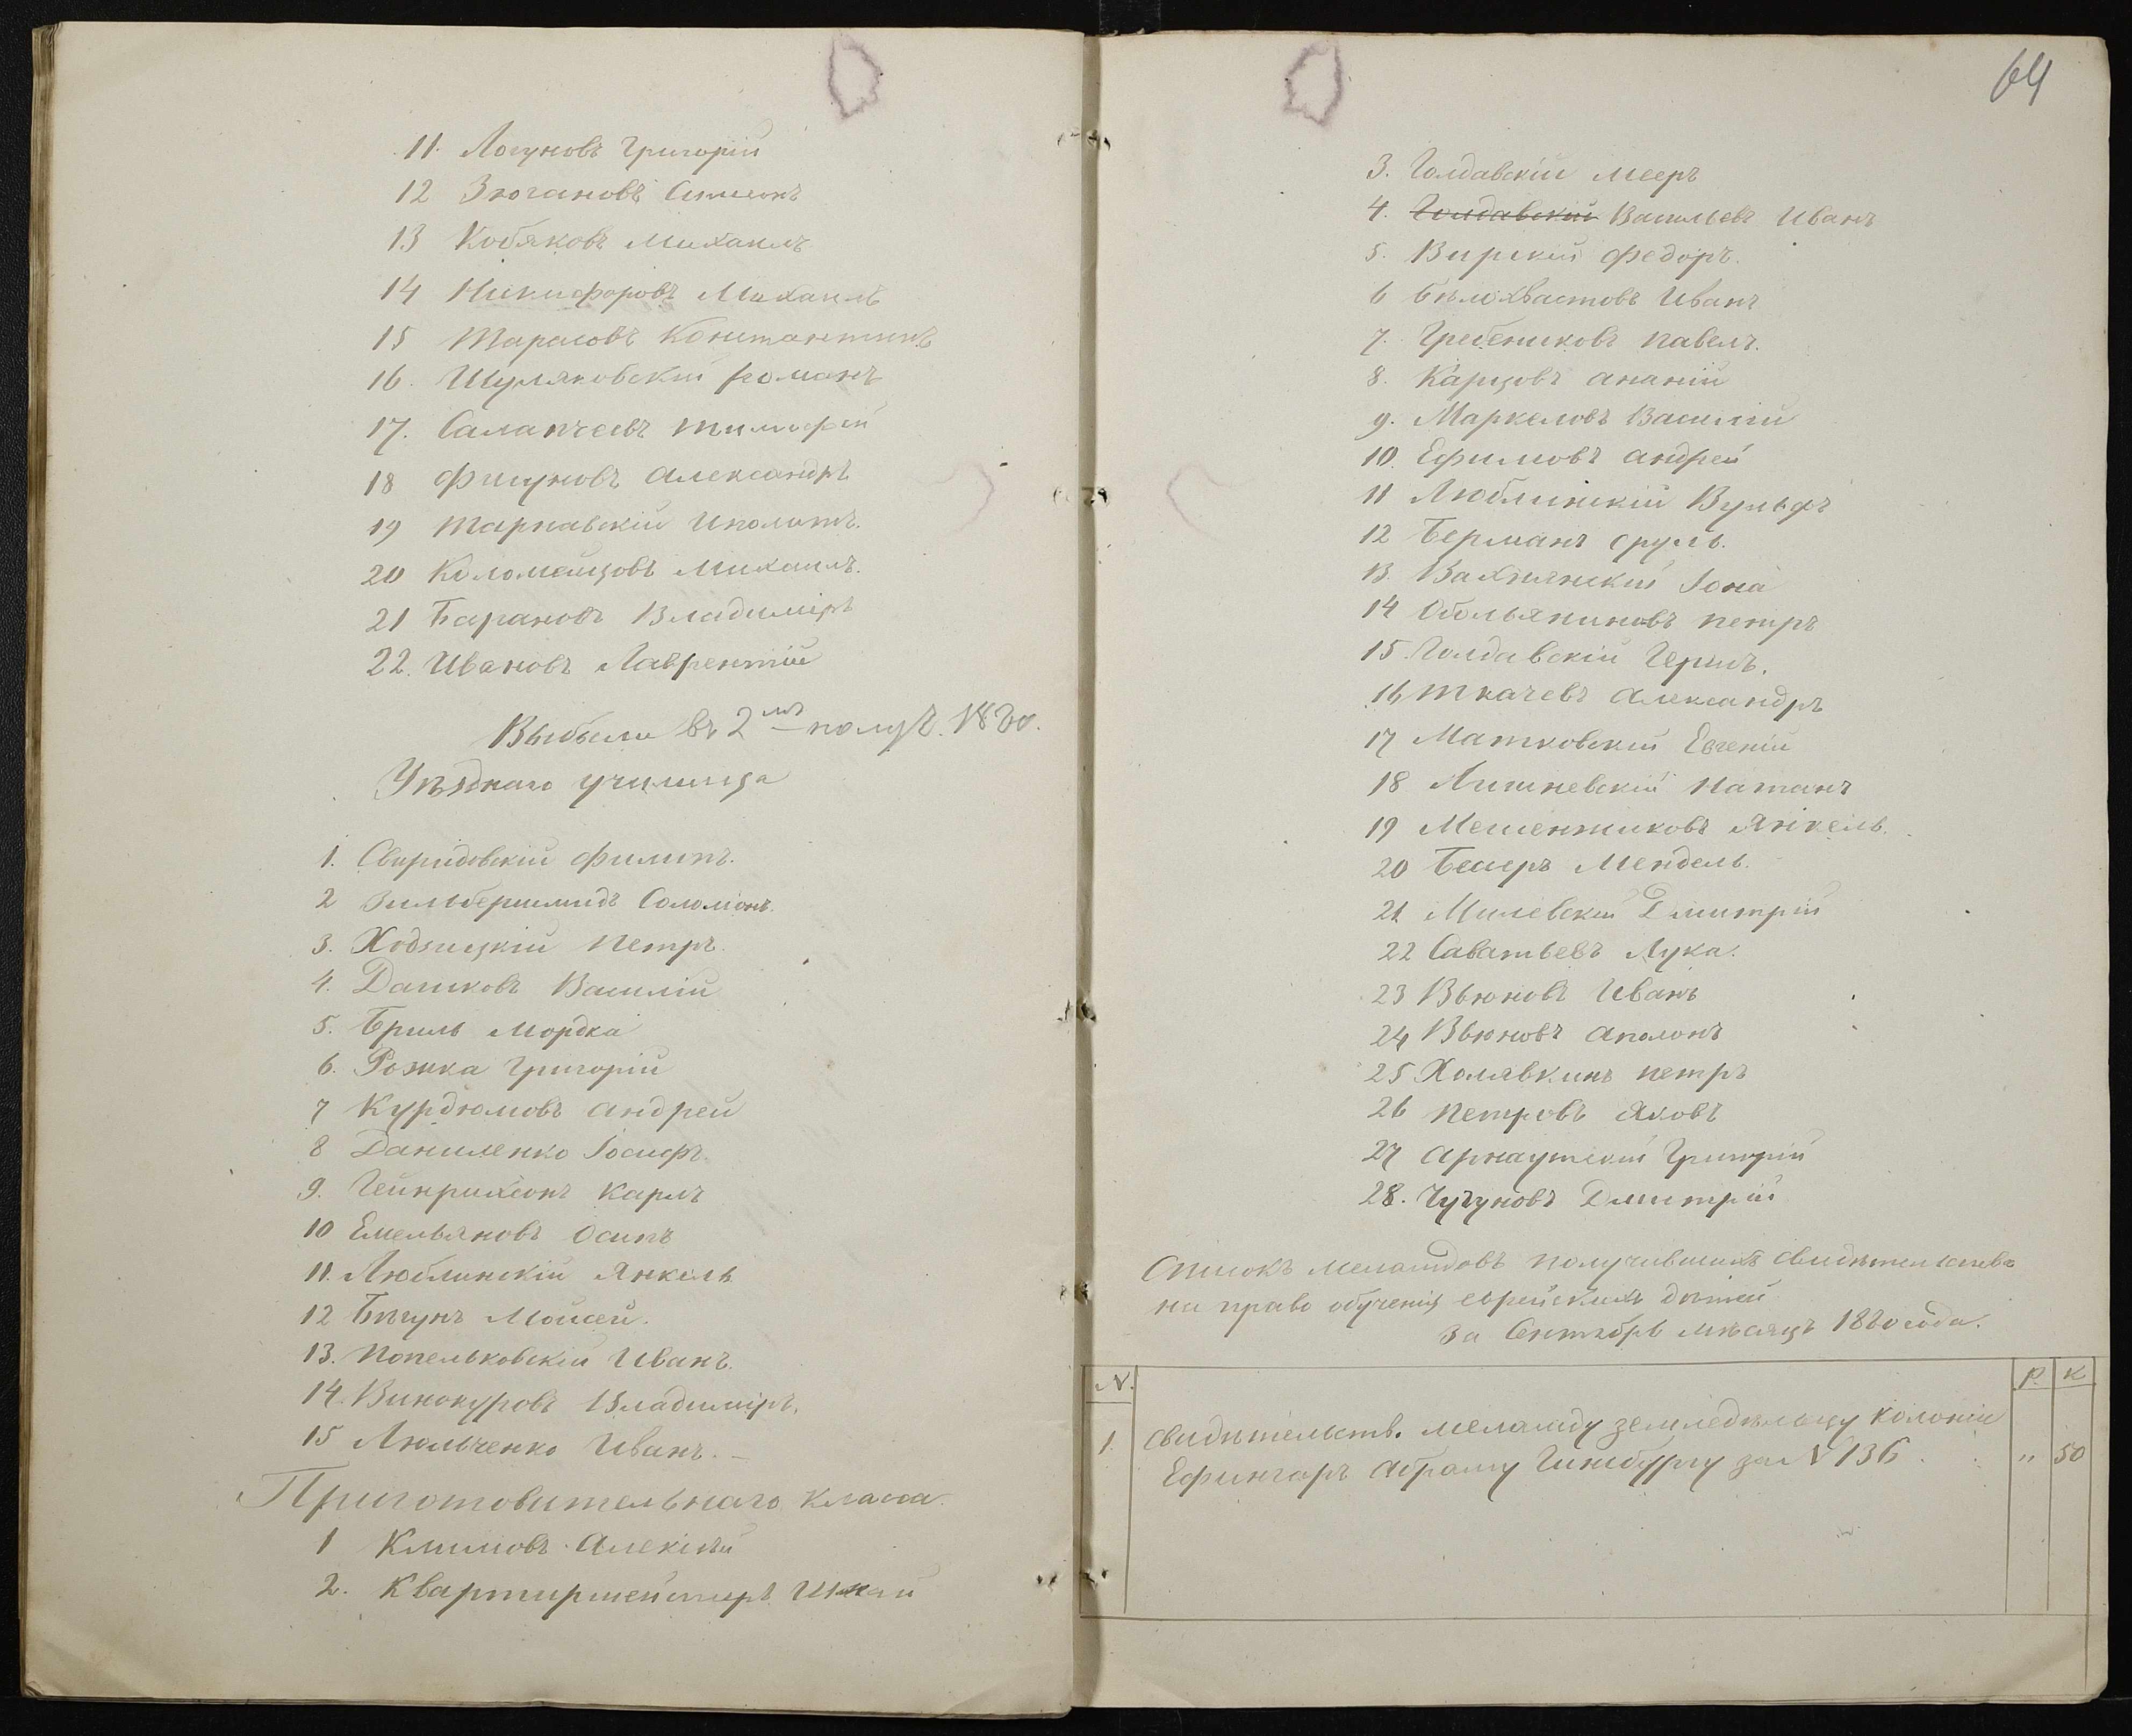 11. Логуновъ Григорій
12 Зюгановъ Симеонъ
13 Кобяковъ Михаилъ
14 Никифоровъ Михаилъ
15 Тарасовъ Константинъ
16. Шуляковскій Романъ
17. Салапчеевъ Тимофей
18 Фигуновъ Александръ
19 Тарнавскій Иполитъ.
20 Коломейцовъ Михаилъ.
21 Барановъ Владиміръ
22. Ивановъ Лаврентій
Выбыли въ 2мъ полуг.
Уѣзднаго училища
1. Свиридовскій Филипъ.
2 Зильбершмидъ Соломонъ.
3. Ходзицкій Петръ.
4. Дашковъ Василій
5. Бриль Мордка
6. Рожка Григорій
7 Курдюмовъ Андрей
8 Даниленко Іосифъ.
9. Гейнрихсонъ Карлъ
10 Емельяновъ Осипъ
11. Люблинскій Янкель
12 Бѣгунъ Мойсей.
13. Попельковскій Иванъ.
14. Винокуровъ Владиміръ.
15 Люльченко Иванъ. –
Приготовительнаго класса.
1 Климовъ Алексѣй
2. Квартирмейстеръ
64
3. Голдавскій Мееръ
4. Голдавскій Васильевъ Иванъ
5. Вирскій Федоръ.
6 Бѣлохвастовъ Иванъ
7. Гребениковъ Павелъ.
8. Карцовъ Ананій
9. Маркеловъ Василій
10. Ефимовъ Андрей
11 Люблинскій Вульфъ
12 Берманъ Сруль.
13. Вахнянскій Іона
14 Обольяниновъ Петръ
15. Голдавскій Гершъ.
16 Ткачевъ Александръ
17 Матковскій Евгеній
18 Лишневскій Натанъ
19 Мешенжниковъ Янкель.
20 Бешеръ Мендель.
21 Милевскій Дмитрій
22 Саватьевъ Лука.
23 Вьюновъ Иванъ
24 Вьюновъ Аполонъ
25 Холявкинъ Петръ
26 Петровъ Яковъ
27 Арнаутскій Григорій
28. Чугуновъ Дмитрій
Списокъ меламдовъ получившихъ свидѣтельства
на право обученія еврейскихъ дѣтей
за Сентябрь мѣсяцъ 1860 года.
N. Р. К
1. Свидѣтельств. меламду земледѣльцу колоніи
Ефингаръ Абраму Гинзбургу за N 136 . . " 50